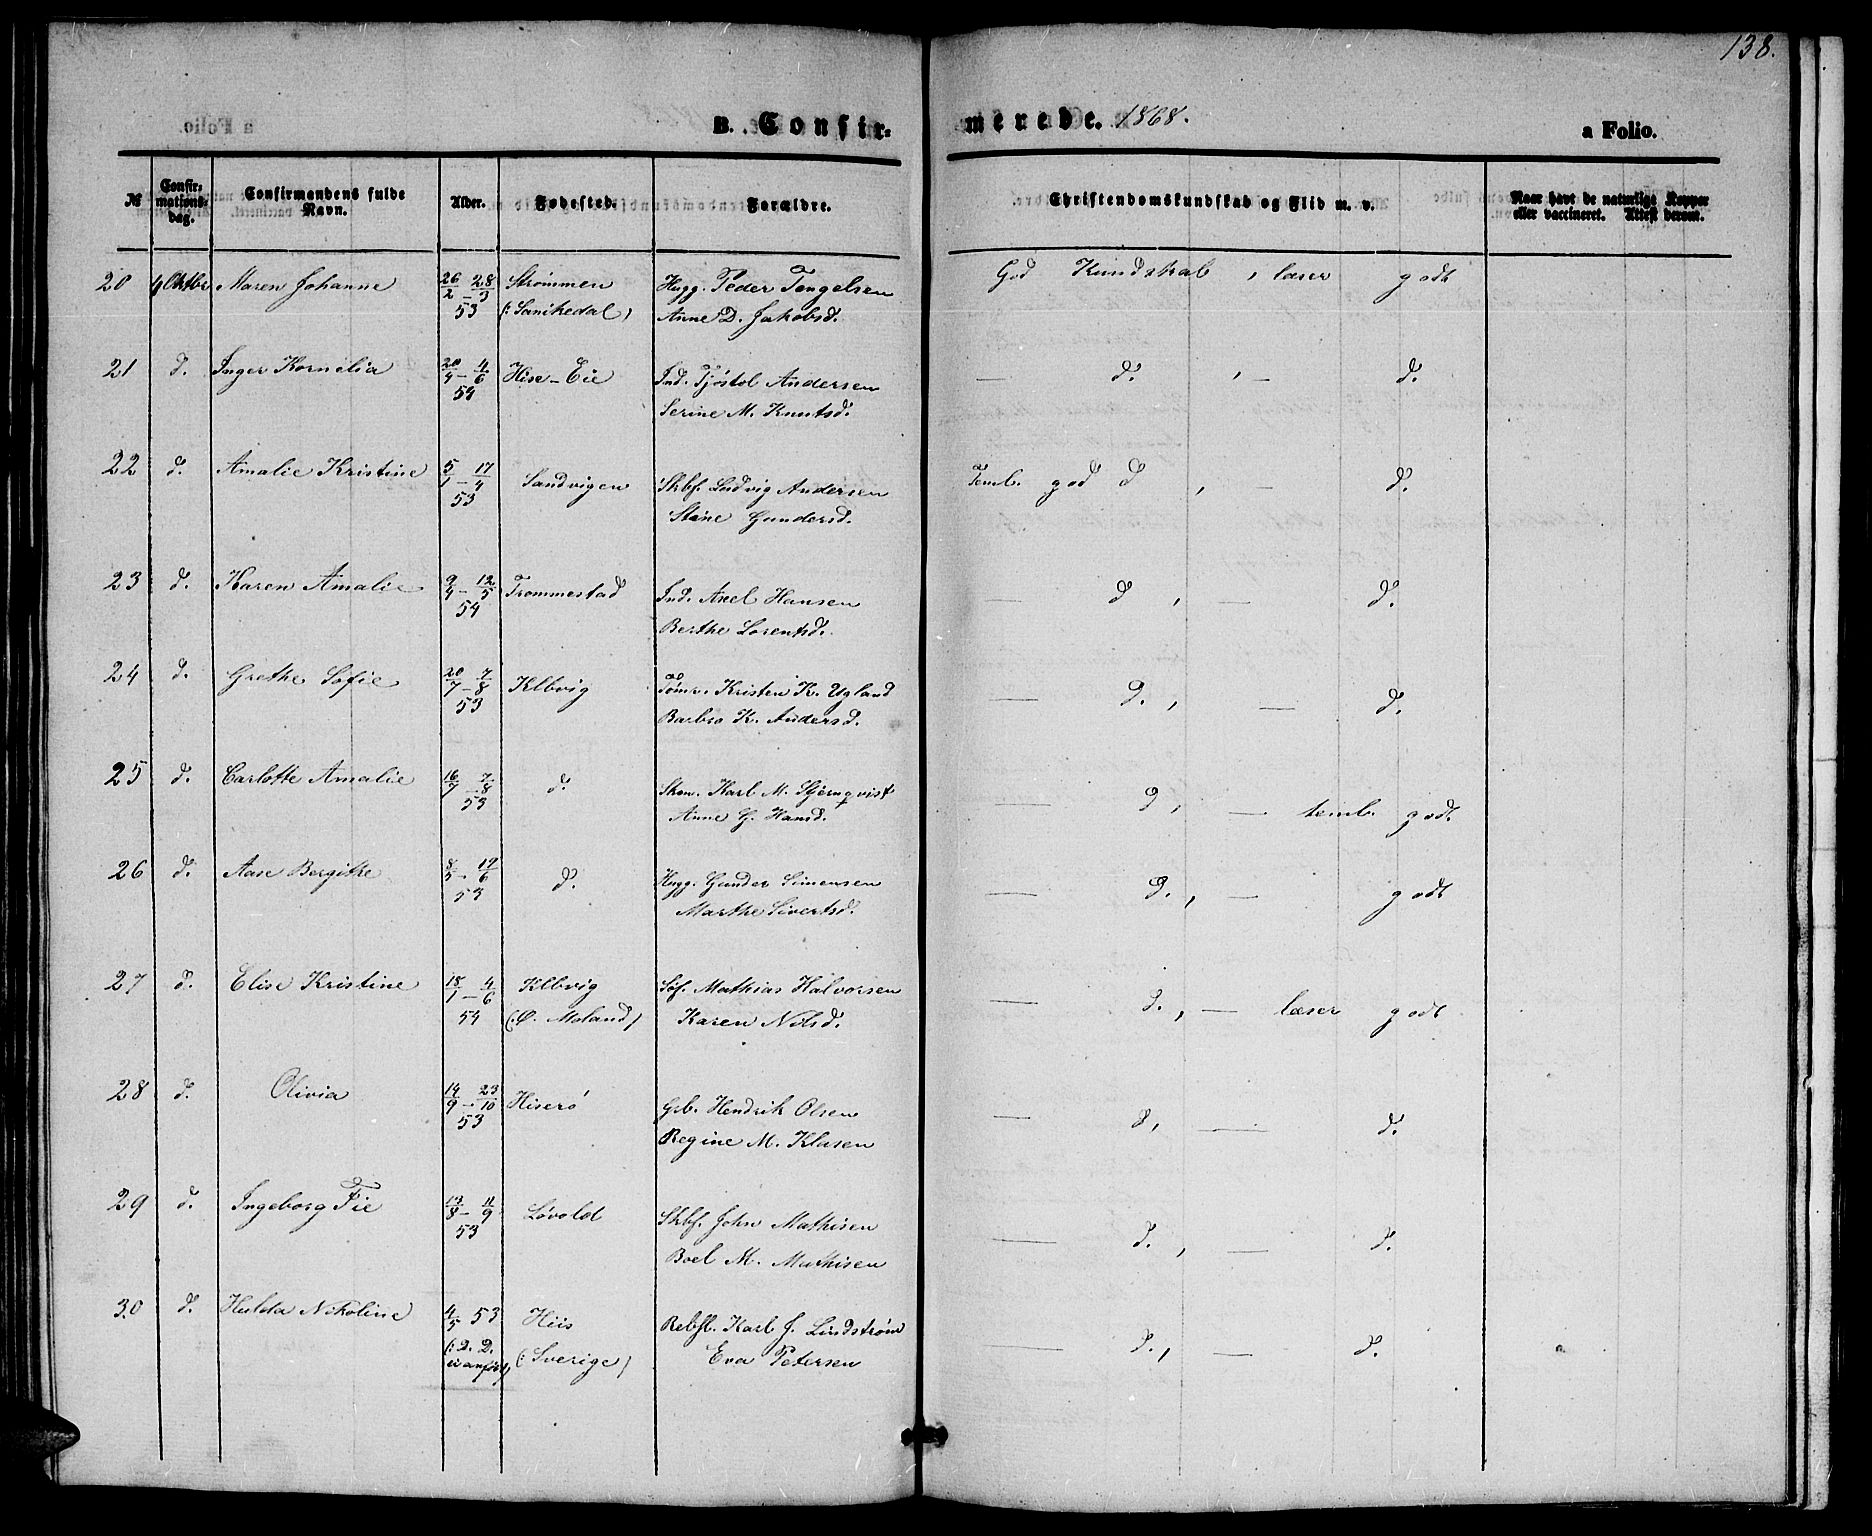 138.
B. Confir-
merede. 1868.
a Folio.
№
Confir-
mations-
dag.
Confirmandens fulde
Navn.
Alder.
Fødested.
Forældre.
Christendomskundskab og Flid m. v.
Naar havt de naturlige Kopper
eller vaccineret. Attest derom.
20 4 Oktbr Maren Johanne 26/2 - 28/3 Strømmen Hugg. Peder Tengelsen God Kundskab, læser godt
53 (: Sanikedal) Anne D. Jakobsd.
21 d. Inger Kornelia 20/4 - 4/6 Hise-Eie Ind. Tjøstol Andersen — d. , — d.
54 Serine M. Knutsd.
22 d. Amalie Kristine 5/1 - 17/4 Sandvigen Skbf. Ludvig Andersen Teml. god d , — d.
53 Stine Gundersd.
23 d. Karen Amalie 9/4 - 12/5 Trommestad Ind. Axel Hansen — d , — d.
54 Berthe Lorentsd.
24 d. Grethe Sofie 20/7 - 7/8 Klbvig Tømr. Kristen K. Ugland — d. , — d.
53 Barbro K. Andersd.
25 d. Carlotte Amalie 16/7 - 7/8 d. Skom. Karl M. Stjernqvist — d , — teml. godt.
53 Anne G. Hansd.
26 d. Aase Bergithe 8/5 - 19/6 d. Hugg. Gunder Simensen — d. , — godt
53 Marthe Sivertsd.
27 d. Elise Kristine 18/1 - 4/6 Klbvig Søf. Mathias Halvorsen — d. , — læser godt
54 (: Ø. Moland) Karen Nilsd.
28 d. Olivia 14/9 - 23/10 Hiserø Grb. Hendrik Olsen — d , — d.
53 Regine M. Klasen
29 d. Ingeborg Fie 13/8 - 11/9 Løvold Skbf. John Mathisen — d. , — d.
53 Boel M. Mathisen
30 d. Hulda Nikoline 4/5 53 Hiis Rebsl. Karl J. Lindstrøm — d. , — d.
(: D. D. (: Sverige) Eva Petersen
ei anført)